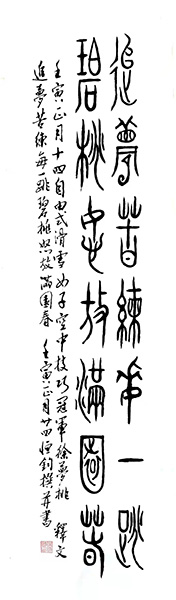 追夢苦練每一跳
碧桃怒放滿園春
壬寅正月十四自由式滑雪女子空中技巧冠軍徐夢桃 釋文
追夢苦練每一跳碧桃怒放滿園春 壬寅正月廿四恒鈞撰并書